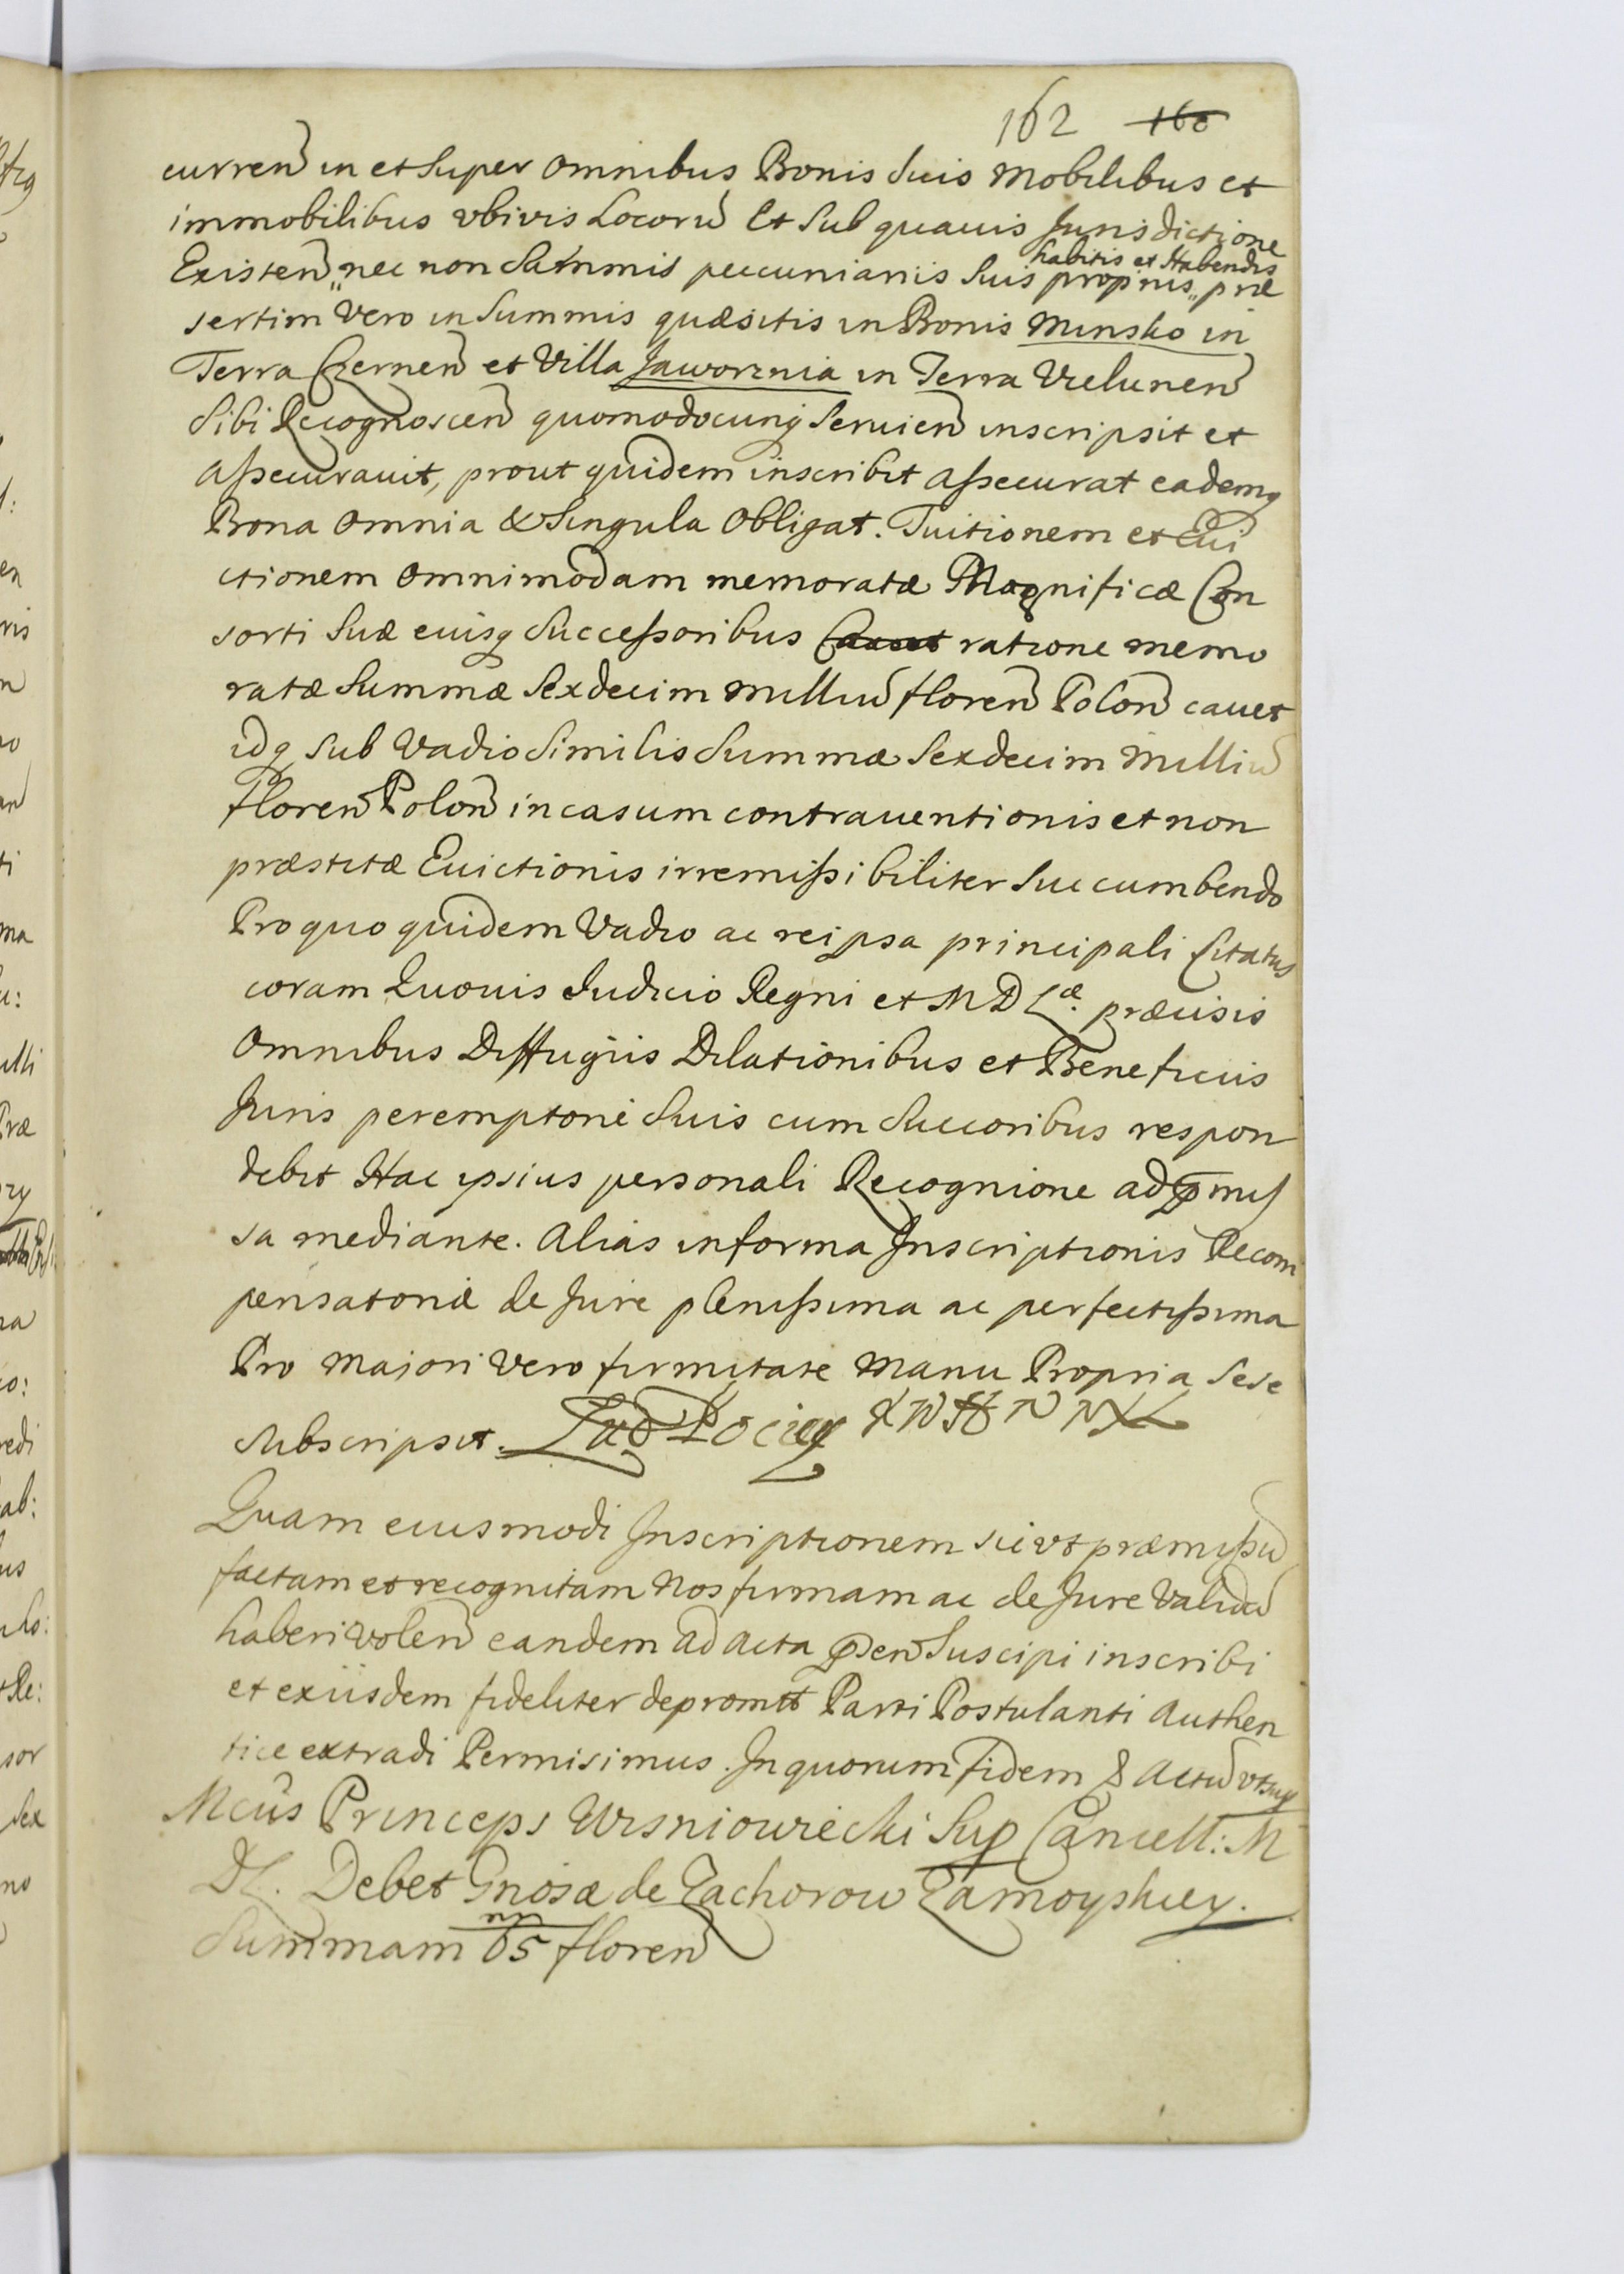 162 160
curren in et Super omnibus Bonis Suis Mobilibus et
immobilibus vbivis Locorū Et Sub quauis Jurisdictione
habitis et Habendis
Existen „ nec non Summis pecuniariis Suis proprius „ præ
sertim Vero in Summis quæsitis in Bonis Minsko in
Terra Czernen et Villa Jaworznia in Terra Vielunen
Sibi Recognoscen quomodocunq Seruien inscripsit et
Aſsecurauit, prout quidem inscribit aſsecurat eademq
Bona Omnia & Singula Obligat. Tuitionem et Eui
ctionem omnimodam memoratæ Magnificæ Con
sorti Suæ eiusq Succeſsoribus ratione memo
ratæ Summæ Sexdecim Milliū floren Polon cauet
idq Sub Vadio Similis Summæ Sexdecim Milliū
floren Polon in casum contrauentionis et non
præstitæ Euictionis irremiſsibiliter Succumbendo
Pro quo quidem Vadio ac rei psa principali Citatus
coram Quouis Judicio Regni et M D L æ. præcisis
Omnibus Diffugiis Dilationibus et Beneficiis
Juris peremptorie Suis cum Succoribus respon
debit Hac ipsius personali Recognione ad pmiſ
sa mediante. Alias in forma Inscriptionis Recom
pensatoriæ de Jure pleniſsima ac perfectiſsima
Pro Majori Vero firmitate Manu Propria Sese
Subscripsit. Lud Pociey
Quam eiusmodi Inscriptionem sic vt præmiſsū
factam et recognitam Nos firmam ac de Jure Validā
haberi volen eandem ad Acta psen Suscipi inscribi
et ex iisdem fideliter depromtt Parti Postulanti Authen
tice extradi Permisimus. In quorum Fidem & Actū vt sup
Mcūs Princeps Wisniowiecki Sup Cancell: M
D L. Debet Gnosæ de Zachorow Zamoyskiey.
Summam 65 floren